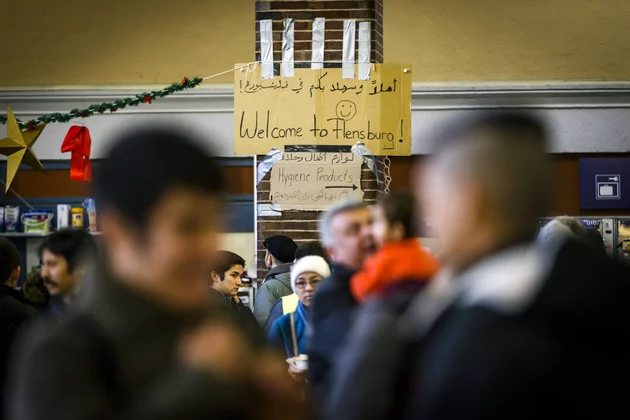 أهلاً وسهلا بكم في فلينسبورغ!
Welcome to Flensburg!
لوازم اطفال
Hygiene Products